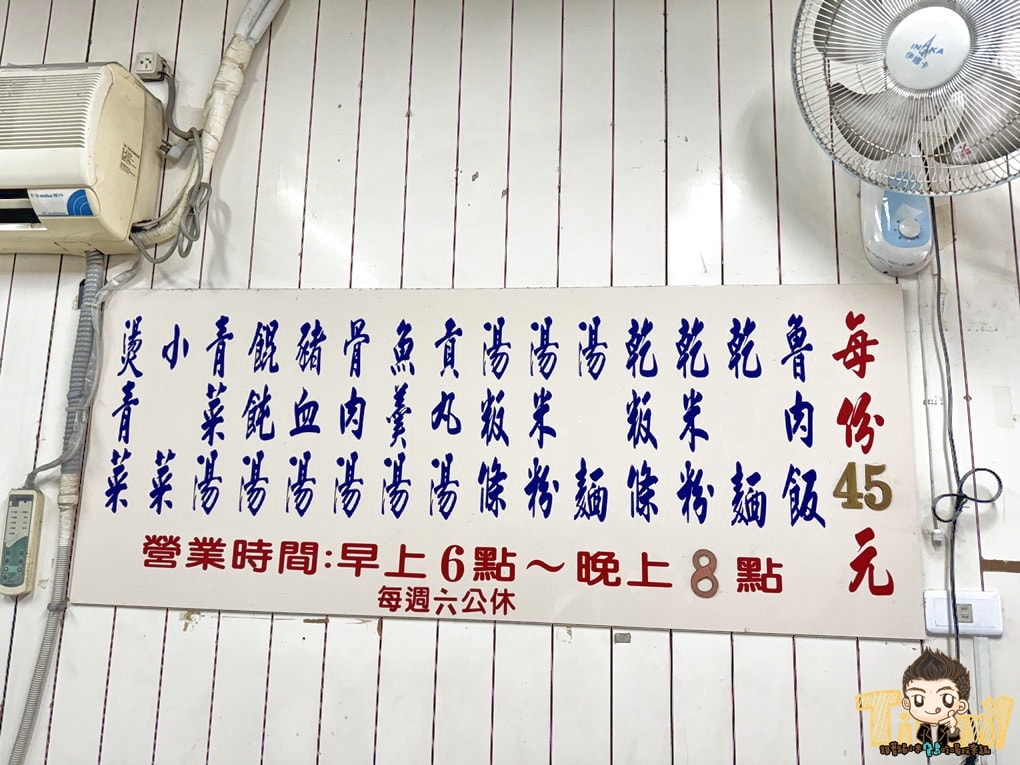 每份45元
魯肉飯
乾麵
乾米粉
乾粄條
湯麵
湯米粉
湯粄條
貢丸湯
魚羹湯
骨肉湯
豬血湯
餛飩湯
青菜湯
小菜
燙青菜
營業時間:早上6點～晚上8點
每週六公休
INAKA
伊娜卡